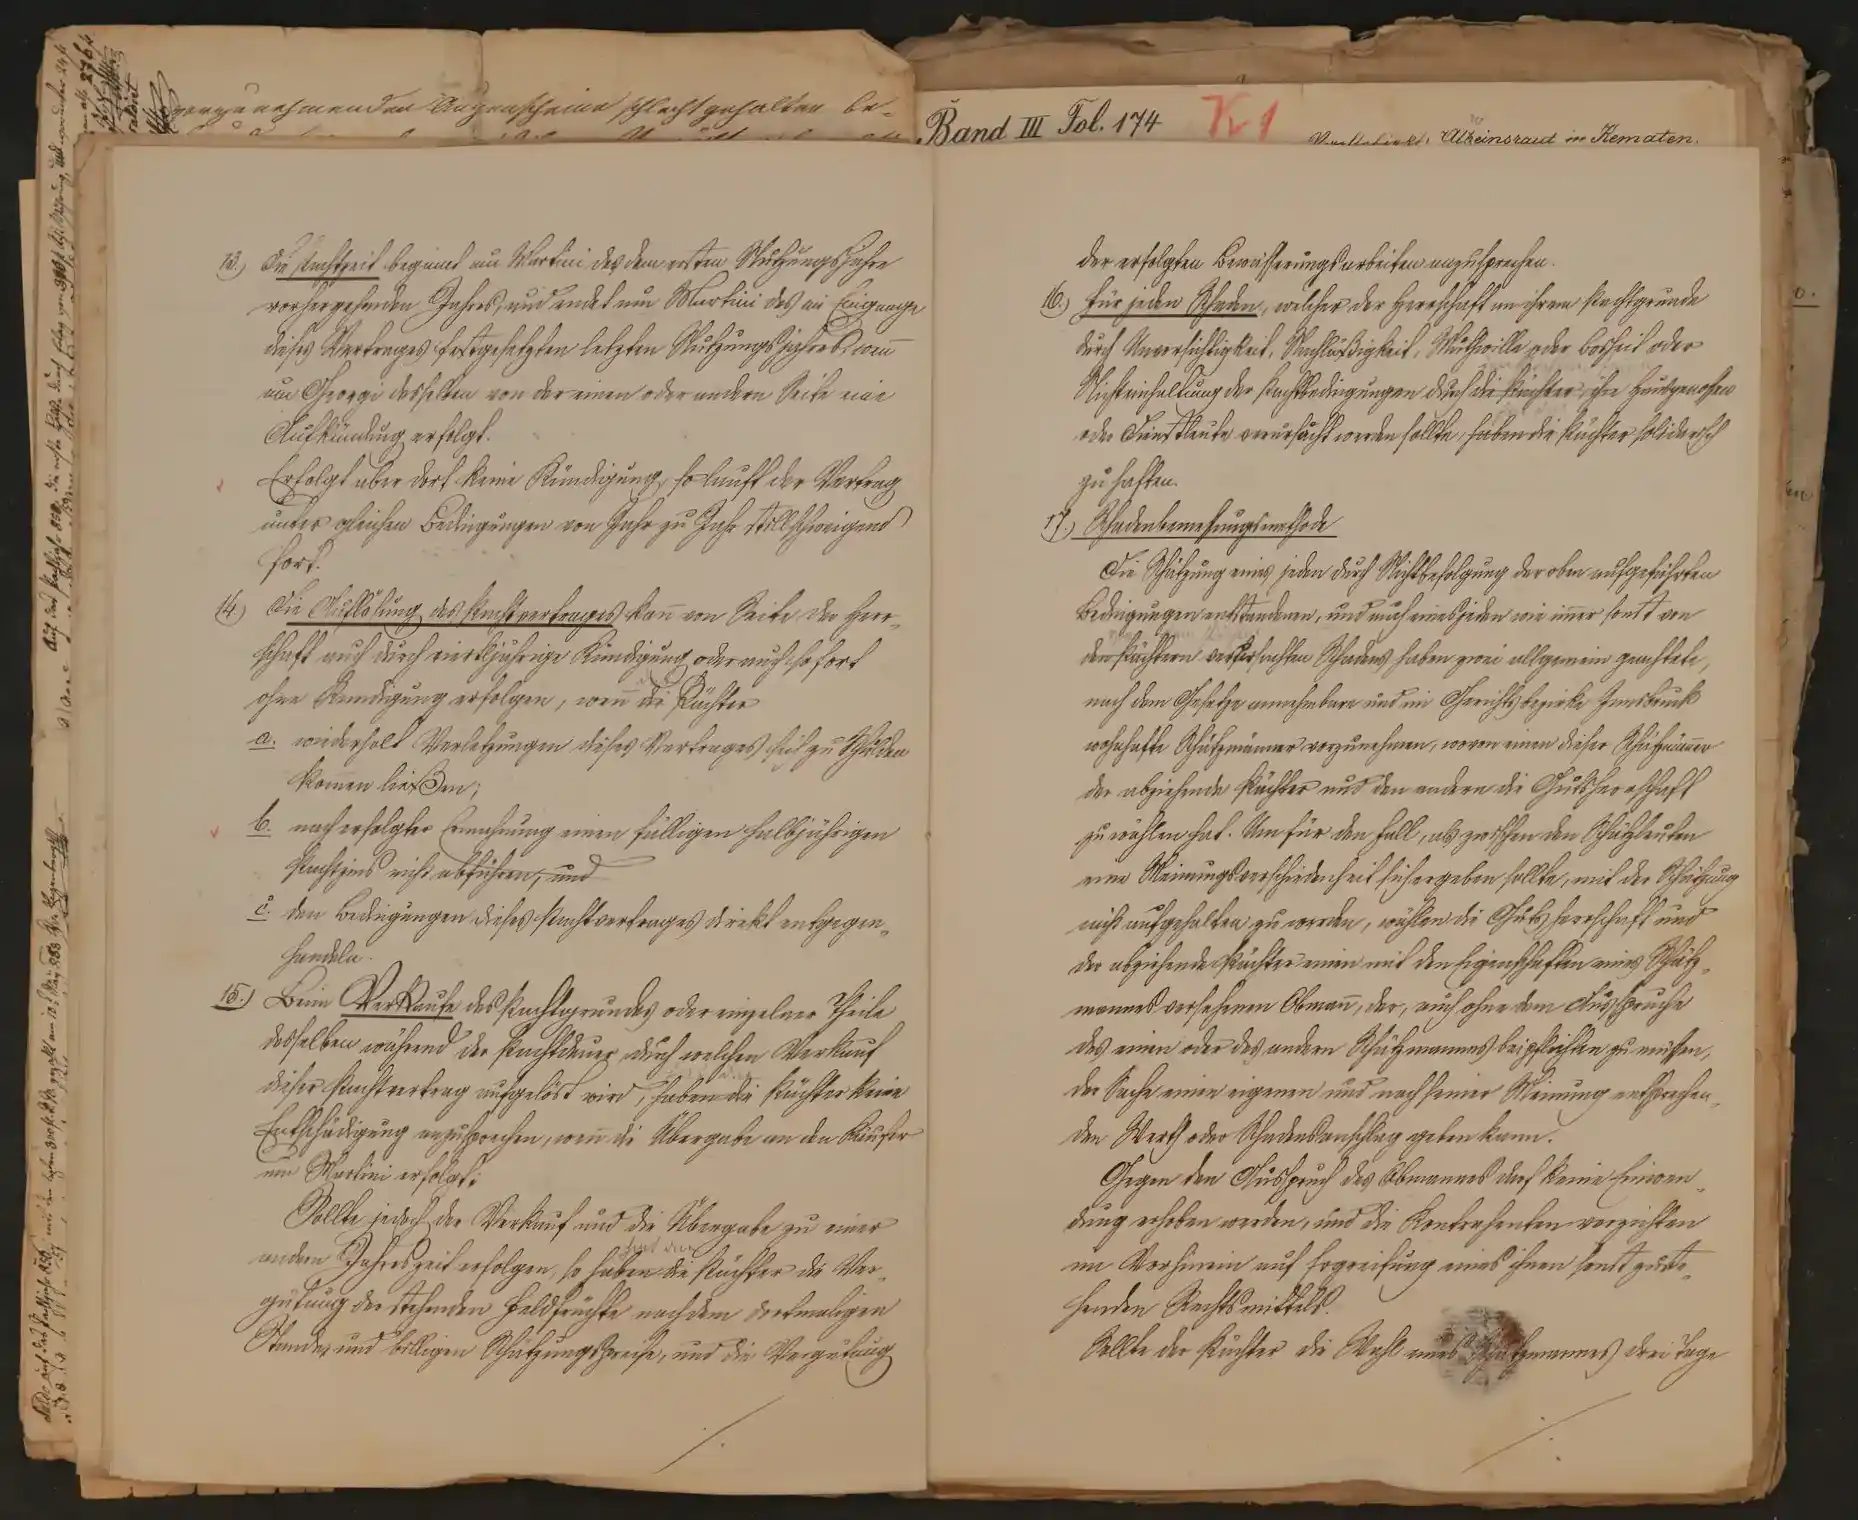 vorzunehmenden Augenscheine schlecht gehalten be-
Band III Fol. 174 K 1
Atzeinsraut in Kematen.
13.) Die Pachtzeit beginnt um Martini des dem ersten Nutzungsjahre
vorhergehenden Jahres, und endet um Martini des im Eingange
dieses Vertrages festgesetzten letzten Nutzungsjahres, wenn
um Georgi desselben von der einen oder andern Seite eine
Aufkündung erfolgt.
Erfolgt aber dort keine Kündigung, so lauft der Vertrag
unter gleichen Bedingungen von Jahr zu Jahr stillschweigend
fort.
14.) Die Auflösung des Pachtvertrages kann von Seite der Herr-
schaft auch durch vierteljährige Kündigung oder auch sofort
ohne Kündigung erfolgen, wenn die Pächter
a. wiederholt Verletzungen dieses Vertrages sich zu Schulden
kommen ließen;
b. nach erfolgter Ermahnung einen fälligen halbjährigen
Pachtzins nicht abführen, und
c. den Bedingungen dieses Pachtvertrages direkt entgegen-
handeln.
15.) Beim Verkaufe des Pachtgrundes oder einzelner Theile
desselben während der Pachtdauer, durch welchen Verkauf
dieser Pachtvertrag aufgelöst wird, haben die Pächter keine
Entschädigung anzusprechen, wenn die Übergabe an den Käufer
um Martini erfolgt;
Sollte jedoch der Verkauf und die Übergabe zu einer
andern Jahreszeit erfolgen, so haben die Pächter die Ver-
gütung der stehenden Feldfrüchte nach dem dortmaligen
Stande, und billigen Schätzungspreise, und die Vergütung
der erfolgten Bewässerungsarbeiten anzusprechen.
16.) Für jeden Schaden, welcher der Herrschaft an ihrem Pachtgrunde
durch Unvorsichtigkeit, Nachlässigkeit, Muthwille oder Bosheit oder
Nichteinhaltung der Pachtbedingungen durch die Pächter, ihre Hausgenossen
oder Dienstleute verursacht werden sollte, haben die Pächter solidarisch
zu haften.
17.) Schadenbemessungsmethode
Die Schätzung eines jeden durch Nichtbefolgung der oben aufgeführten
Bedingungen entstandenen, und auch eines jeden wie immer sonst von
den Pächtern verursachten Schadens haben zwei allgemein geachtete,
nach dem Gesetze annehmbare und im Gerichtsbezirke Innsbruck
wohnhafte Schätzmänner vorzunehmen, wovon einen dieser Schätzmänner
der abziehende Pächter und den andern die Gutsherrschaft
zu wählen hat. Um für den Fall, als zwischen den Schätzleuten
eine Meinungsverschiedenheit sich ergeben sollte, mit der Schätzung
nicht aufgehalten zu werden, wählen die Gutsherrschaft und
der abziehende Pächter einen mit den Eigenschaften eines Schätz-
mannes versehenen Obmann, der, auch ohne dem Ausspruche
des einen oder des andern Schätzmannes beipflichten zu müssen,
der Sache einen eigenen und nach seiner Meinung entsprechen-
den Werth oder Schadensanschlag geben kann.
Gegen den Ausspruch des Obmannes darf keine Einwen-
dung erhoben werden, und die Kontrahenten verzichten
im Vorhinein auf Ergreifung eines ihnen sonst zuste-
henden Rechtsmittels.
Sollte der Pächter die Wahl eines Schätzmannes drei Tage